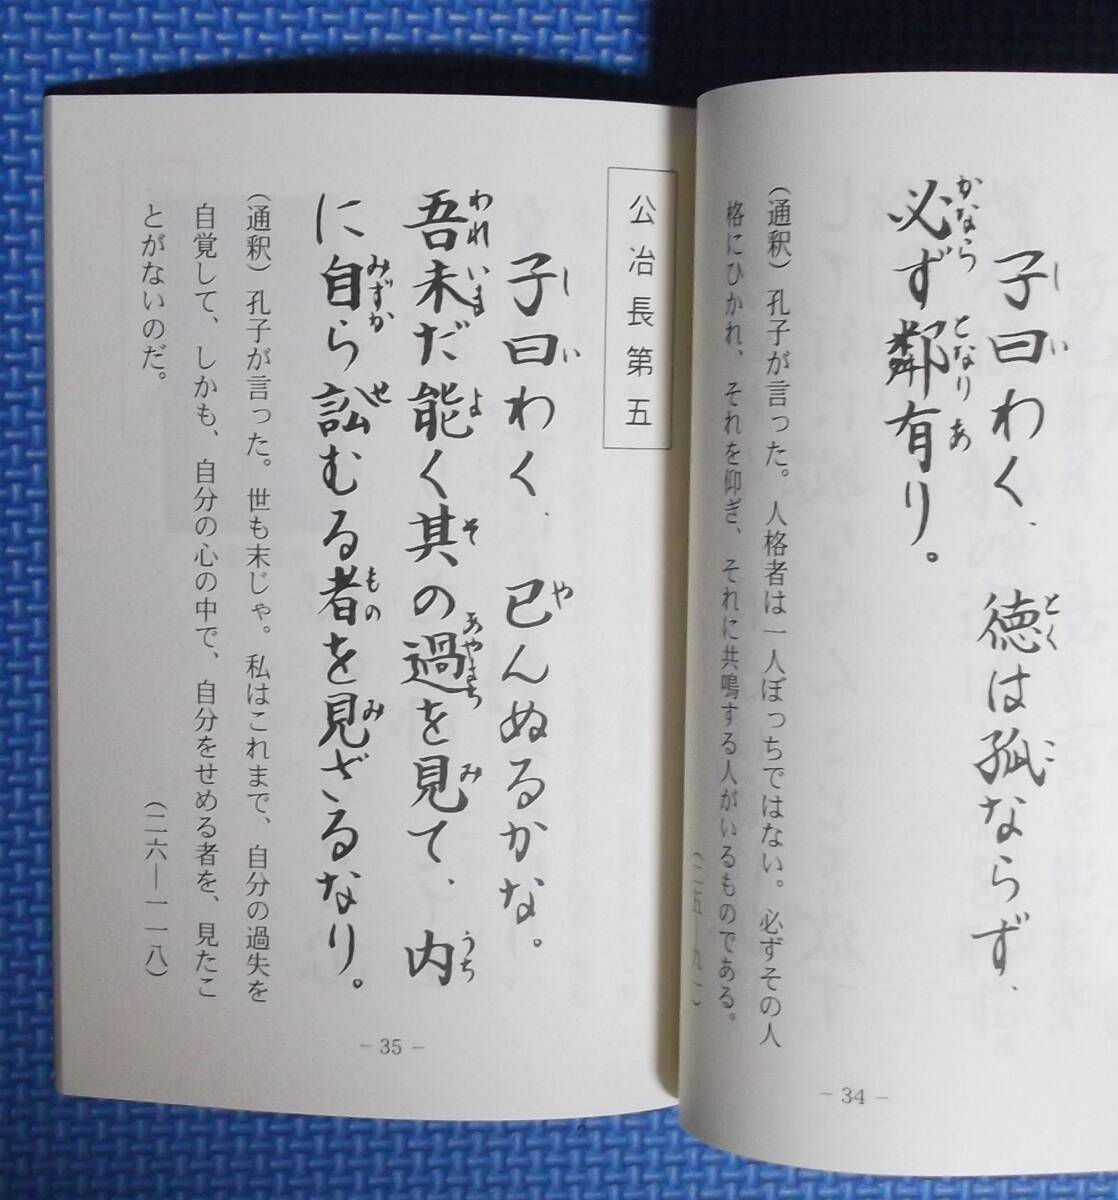 子曰わく、徳は孤ならず、
必ず鄰有り。
(通釈)孔子が言った。人格者は一人ぼっちではない。必ずその人
格にひかれ、それを仰ぎ、それに共鳴する人がいるものである。
(二五—九一)
– 34 –
公冶長第五
子曰わく、已んぬるかな。
吾未だ能く其の過を見て、内
に自ら訟むる者を見ざるなり。
(通釈)孔子が言った。世も末じゃ。私はこれまで、自分の過失を
自覚して、しかも、自分の心の中で、自分をせめる者を、見たこ
とがないのだ。
(二六—一一八)
– 35 –